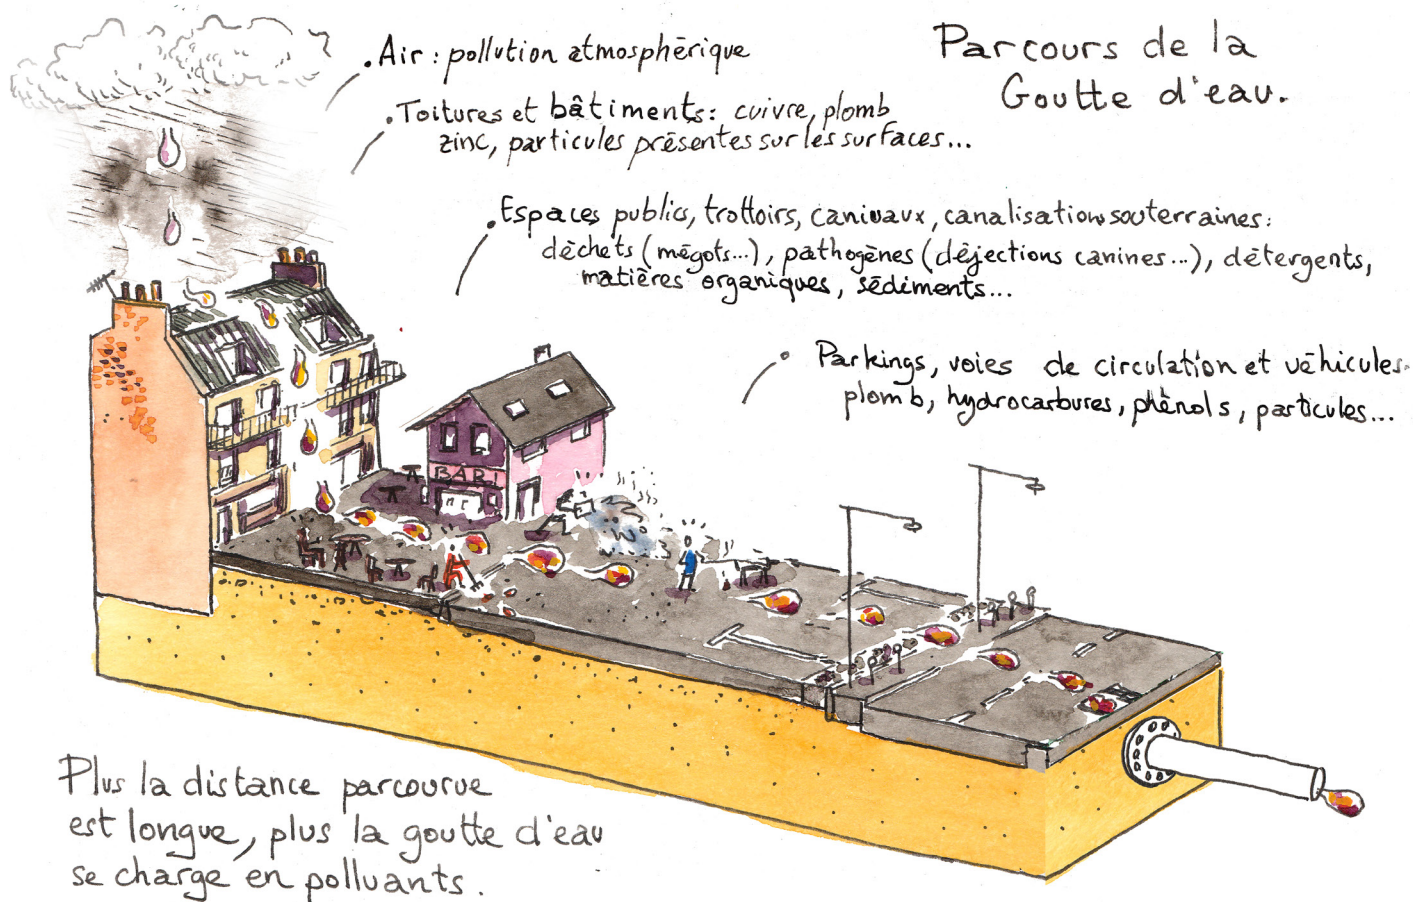 Parcours de la
Goutte d'eau.
. Air : pollution atmosphérique
. Toitures et bâtiments : cuivre, plomb
zinc, particules présentes sur les surfaces...
. Espaces publics, trottoirs, caniveaux, canalisations souterraines :
déchets (mégots...), pathogènes (déjections canines...), détergents,
matières organiques, sédiments...
. Parkings, voies de circulation et véhicules.
plomb, hydrocarbures, phénols, particules...
BAR!
Plus la distance parcourue
est longue, plus la goutte d'eau
se charge en polluants.